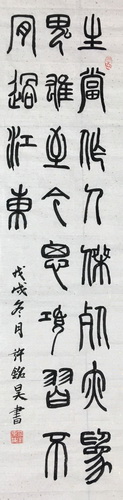 生當作人傑死亦為
鬼雄至今思項羽不
肯過江東
戊戌冬月許銘昊書